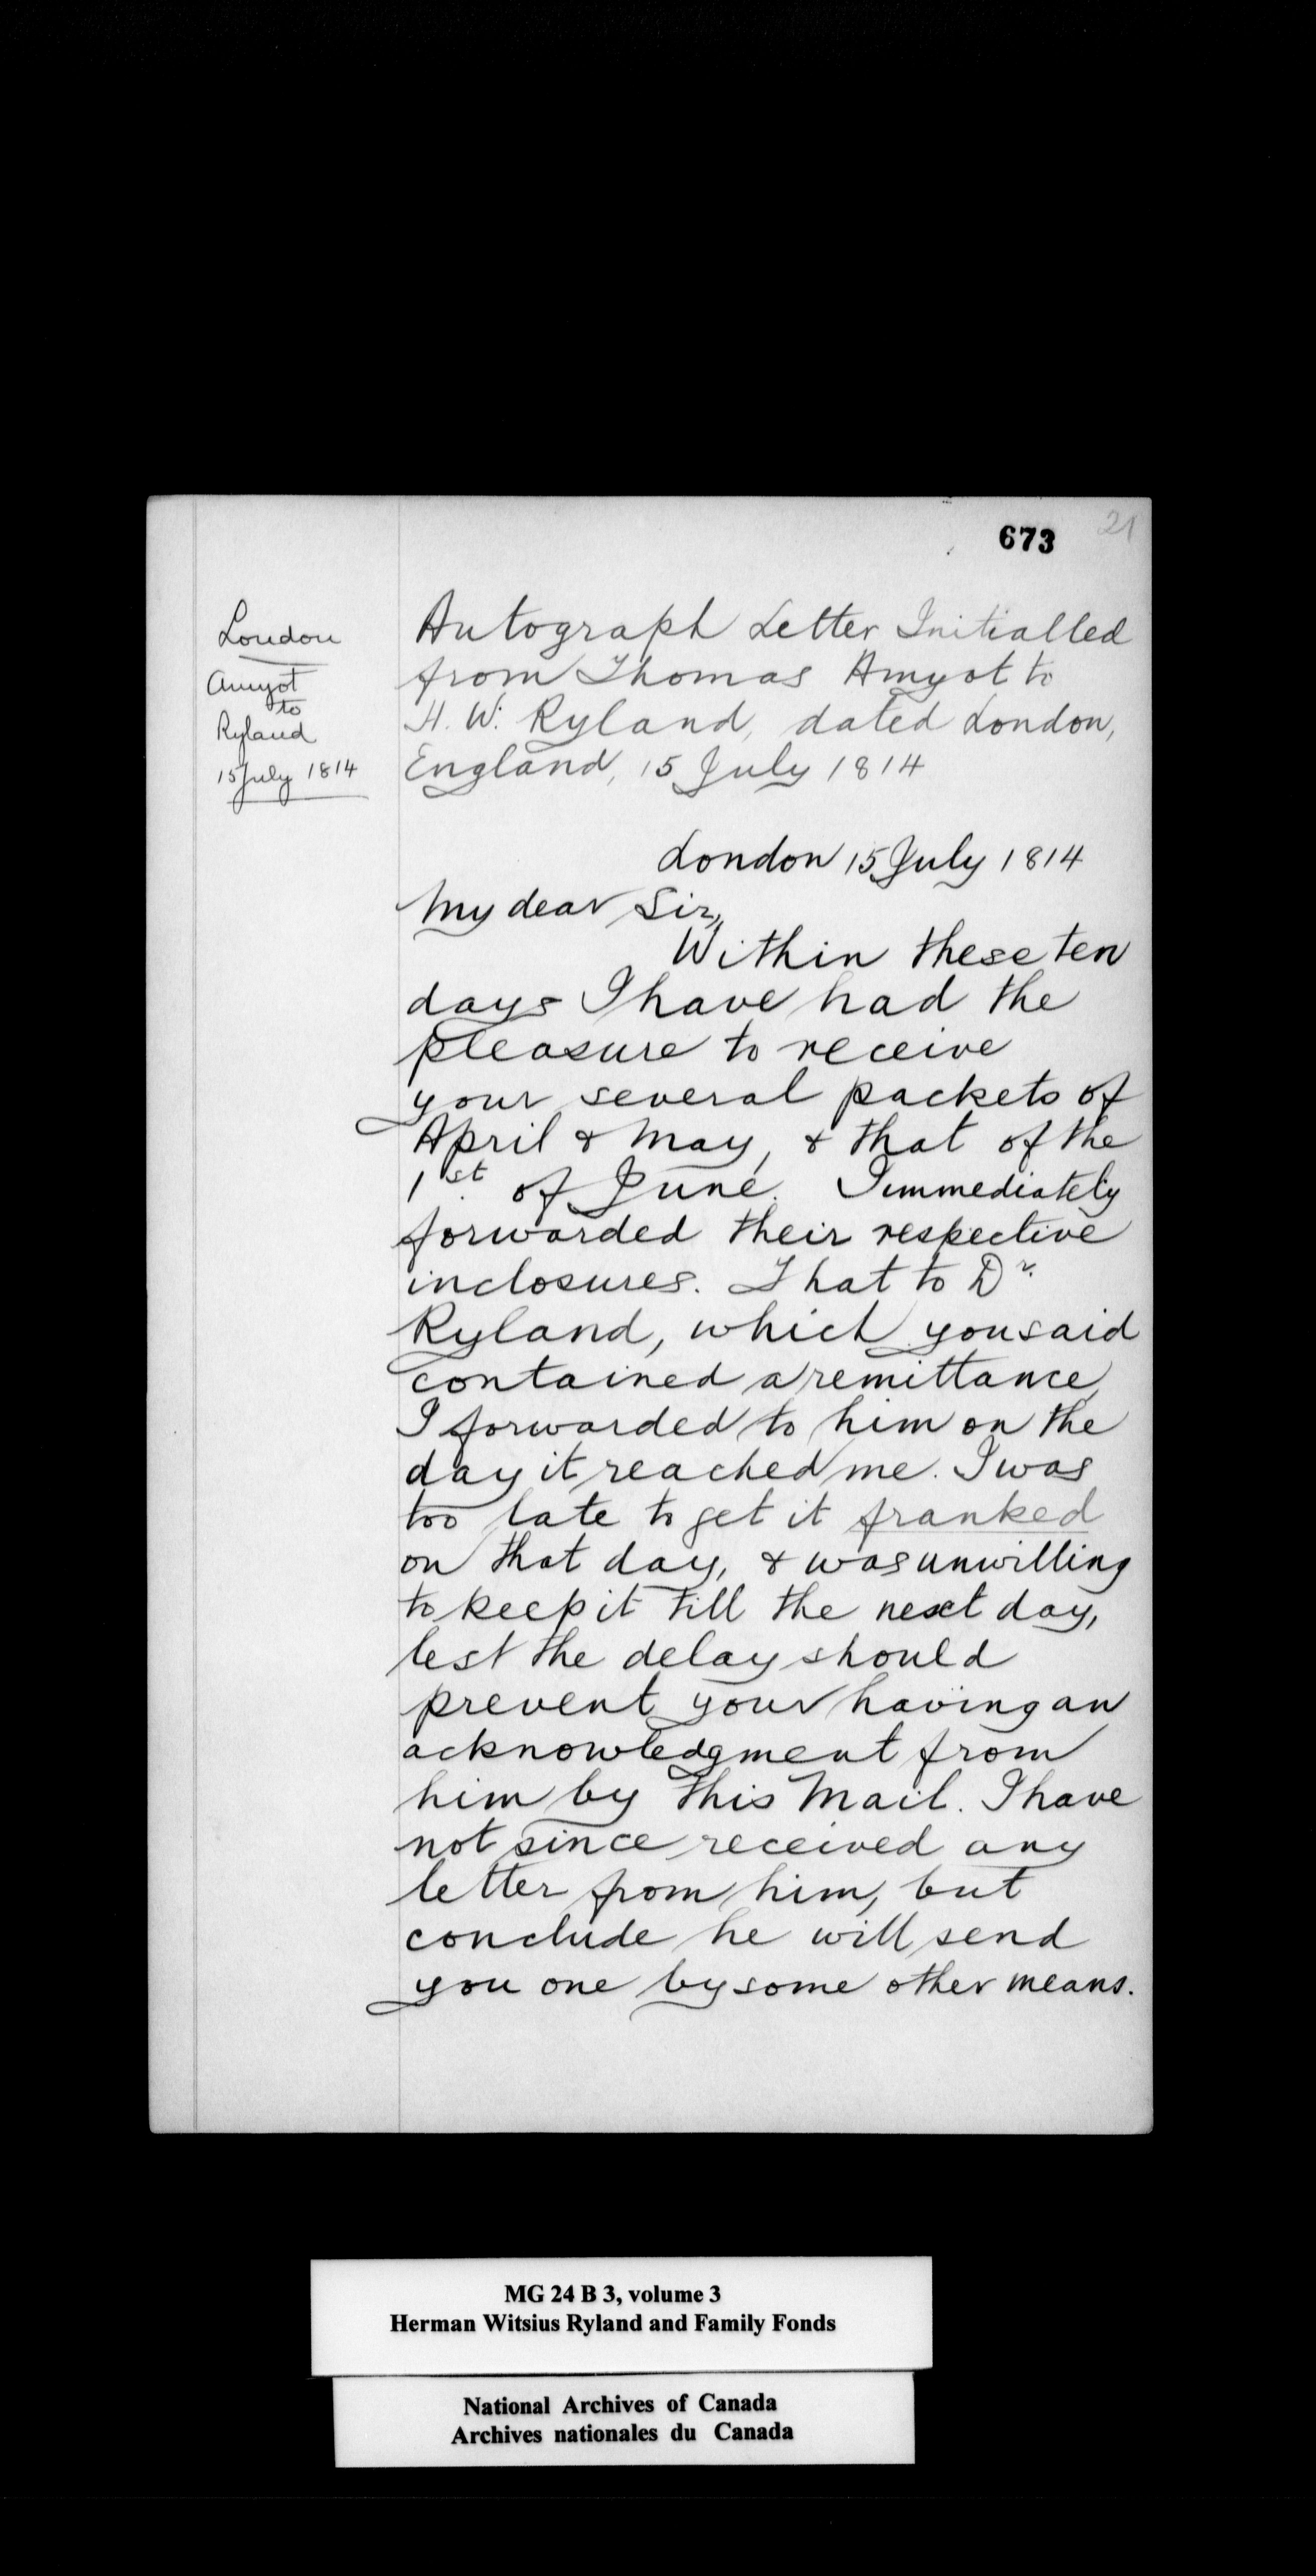 673
21
London
Amyot
to
Ryland
15 July 1814
Autograph Letter Initialled
from Thomas Amyot to
H. W. Ryland, dated London,
England, 15 July 1814
London 15 July 1814
My dear Sir,
Within these ten
days I have had the
pleasure to receive
your several packets of
April & May, & that of the
1st. of June. I immediately
forwarded their respective
inclosures. That to Dr.
Ryland, which you said
contained a remittance,
I forwarded to him on the
day it reached me. I was
too late to get it franked
on that day, & was unwilling
to keep it till the next day,
lest the delay should
prevent your having an
acknowledgment from
him by this Mail. I have
not since received any
letter from him, but
conclude he will send
you one by some other means.
MG 24 B 3, volume 3
Herman Witsius Ryland and Family Fonds
National Archives of Canada
Archives nationales du Canada